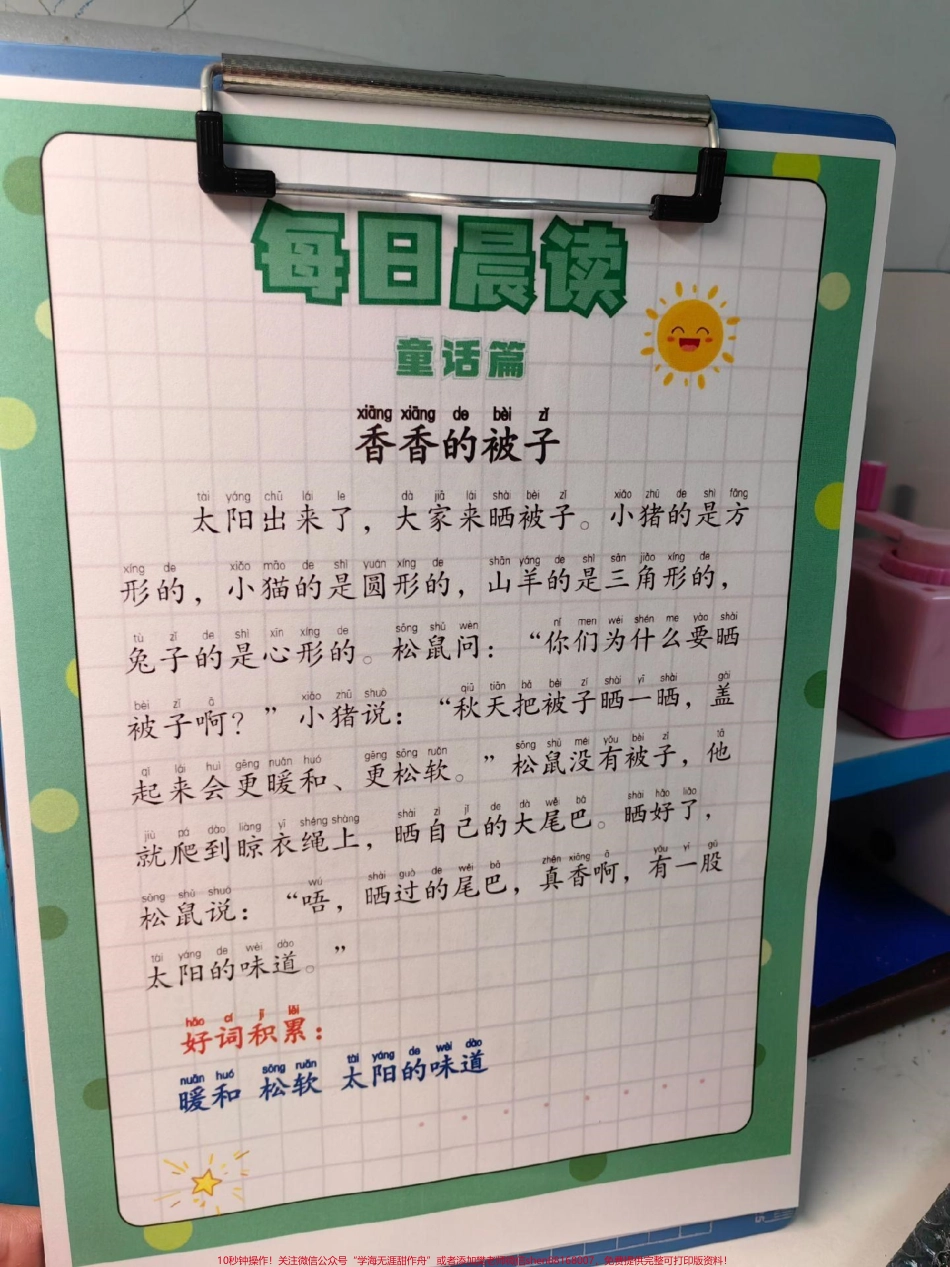 每日晨读
童话篇
xiāng xiāng de bèi zǐ
香香的被子
tài yáng chū lái le dà jiā lái shài bèi zǐ xiǎo zhū de shì fāng
太阳出来了，大家来晒被子。小猪的是方
xíng de xiǎo māo de shì yuán xíng de shān yáng de shì sān jiǎo xíng de
形的，小猫的是圆形的，山羊的是三角形的，
tù zǐ de shì xīn xíng de sōng shǔ wèn nǐ men wèi shén me yào shài
兔子的是心形的。松鼠问：“你们为什么要晒
bèi zǐ ō xiǎo zhū shuō qiū tiān bǎ bèi zǐ shài yī shài gài
被子啊？”小猪说：“秋天把被子晒一晒，盖
qǐ lái huì gèng nuǎn huó gèng sōng ruǎn sōng shǔ méi yǒu bèi zǐ tā
起来会更暖和、更松软。”松鼠没有被子，他
jiù pá dào liàng yī shéng shàng shài zì jǐ de dà wěi bā shài hǎo liǎo
就爬到晾衣绳上，晒自己的大尾巴。晒好了，
sōng shǔ shuō wú shài guò de wěi bā zhēn xiāng ā yǒu yī gǔ
松鼠说：“唔，晒过的尾巴，真香啊，有一股
tài yáng de wèi dào
太阳的味道。”
hǎo cí jī lěi
好词积累：
nuǎn huó sōng ruǎn tài yáng de wèi dào
暖和 松软 太阳的味道
10秒钟操作！关注微信公众号“学海无涯甜作舟”或者添加
免费提供完整可打印版资料！